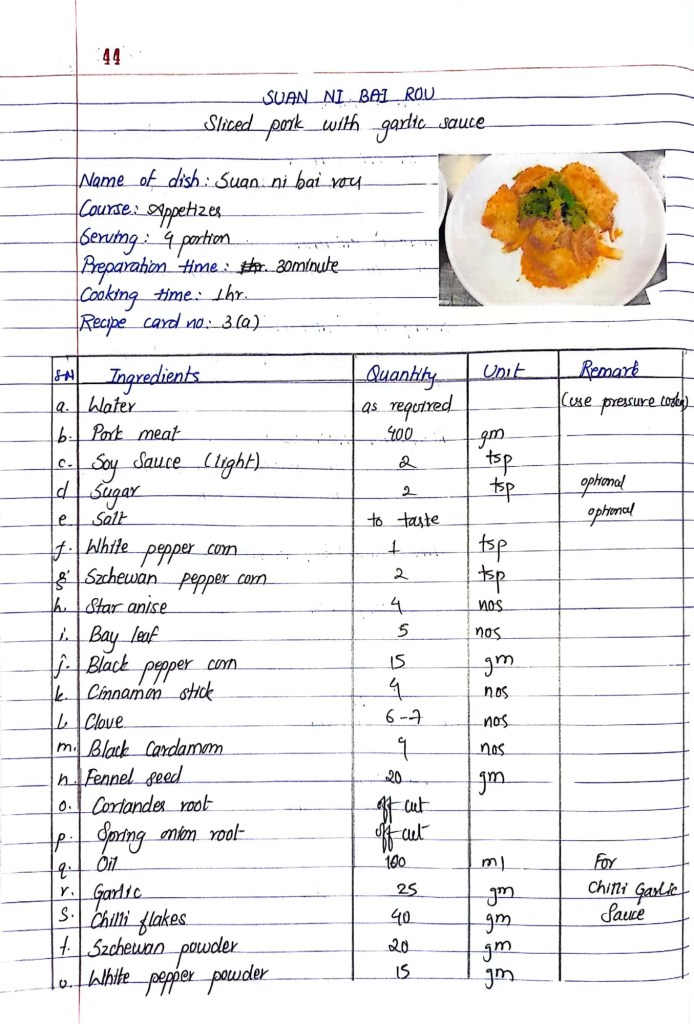 44
SUAN NI BAI ROU
Sliced pork with garlic sauce
Name of dish: Suan ni bai rou
Course: Appetizer
Serving: 4 portion
Preparation time: 30minute
Cooking time: 1hr.
Recipe card no: 3(a)
S.N Ingredients Quantity Unit Remark
a. Water as required (use pressure cooker)
b. Pork meat 400 gm
c. Soy Sauce (light) 2 tsp
d Sugar 2 tsp optional
e Salt to taste optional
f. White pepper corn 1 tsp
g. Szchewan pepper corn 2 tsp
h. Star anise 4 nos
i. Bay leaf 5 nos
j. Black pepper corn 15 gm
k. Cinnamon stick 4 nos
l. Clove 6-7 nos
m. Black Cardamom 4 nos
n. Fennel seed 20 gm
o. Coriander root off cut
p. Spring onion root off cut
q. Oil 100 ml For
r. Garlic 25 gm Chilli Garlic
s. Chilli flakes 40 gm Sauce
t. Szchewan powder 20 gm
u. White pepper powder 15 gm